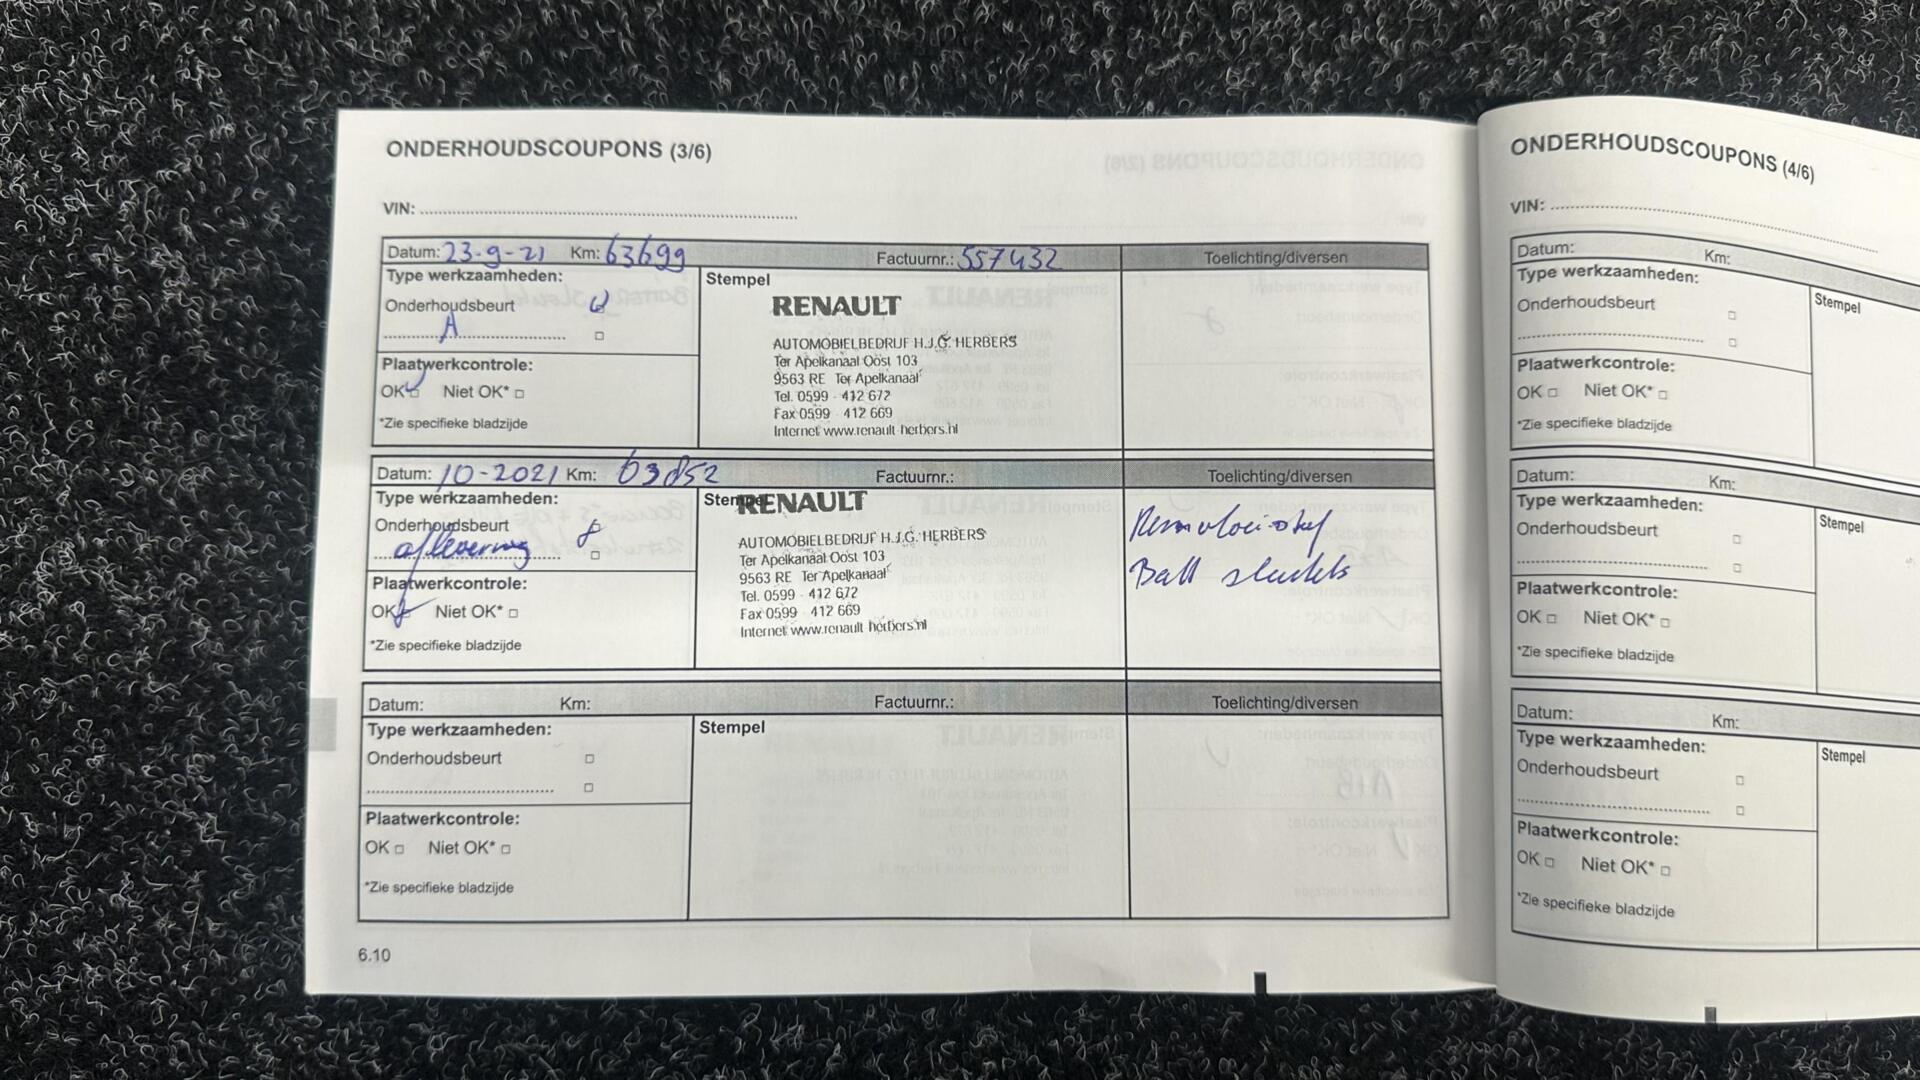 ONDERHOUDSCOUPONS (3/6)
VIN:
Datum: 23-9-21 Km: 63699 Factuurnr.: 557432 Toelichting/diversen
Type werkzaamheden:
Onderhoudsbeurt
A
Plaatwerkcontrole:
OK Niet OK*
*Zie specifieke bladzijde
Stempel
RENAULT
AUTOMOBIELBEDRIJF H.J.G. HERBERS
Ter Apelkanaal Oost 103
9563 RE Ter Apelkanaal
Tel. 0599 - 412 672
Fax 0599 - 412 669
Internet www.renault-herbers.nl
Datum: 10-2021 Km: 63852 Factuurnr.: Toelichting/diversen
Type werkzaamheden:
Onderhoudsbeurt
aflevering
Plaatwerkcontrole:
OK Niet OK*
*Zie specifieke bladzijde
Stempel
RENAULT
AUTOMOBIELBEDRIJF H.J.G. HERBERS
Ter Apelkanaal Oost 103
9563 RE Ter Apelkanaal
Tel. 0599 - 412 672
Fax 0599 - 412 669
Internet www.renault-herbers.nl
Remvloeistof
Batt sleutels
Datum: Km: Factuurnr.: Toelichting/diversen
Type werkzaamheden:
Onderhoudsbeurt
Plaatwerkcontrole:
OK Niet OK*
*Zie specifieke bladzijde
Stempel
6.10
ONDERHOUDSCOUPONS (4/6)
VIN:
Datum: Km:
Type werkzaamheden:
Onderhoudsbeurt
Plaatwerkcontrole:
OK Niet OK*
*Zie specifieke bladzijde
Stempel
Datum: Km:
Type werkzaamheden:
Onderhoudsbeurt
Plaatwerkcontrole:
OK Niet OK*
*Zie specifieke bladzijde
Stempel
Datum: Km:
Type werkzaamheden:
Onderhoudsbeurt
Plaatwerkcontrole:
OK Niet OK*
*Zie specifieke bladzijde
Stempel